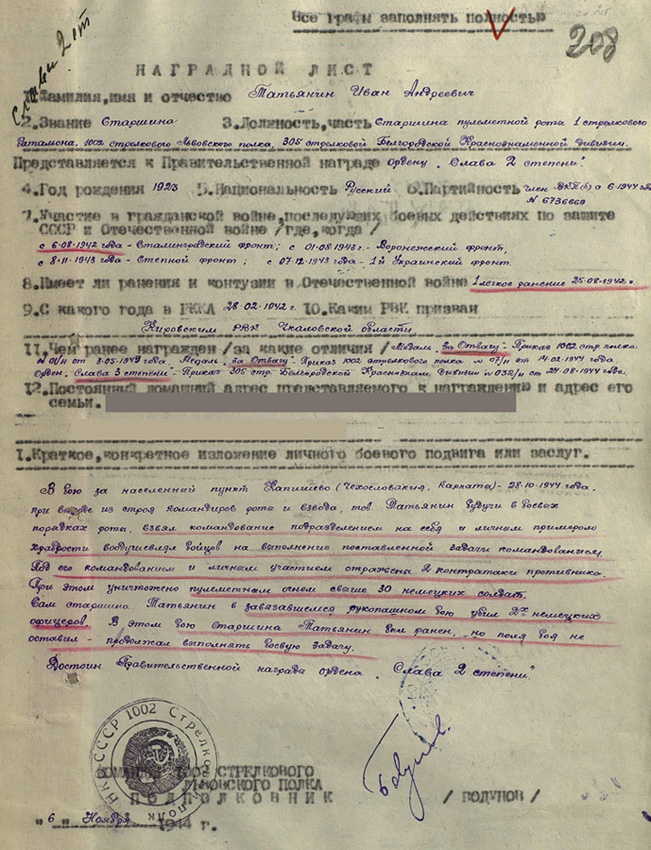 Все графы заполнять полностью
208
Слава 2 ст
НАГРАДНОЙ ЛИСТ
1. Фамилия, имя и отчество Татьянин Иван Андреевич
2. Звание Старшина 3. Должность, часть Старшина пулеметной роты 1 стрелкового
батальона, 1002 стрелкового Львовского полка, 305 стрелковой Белгородской Краснознаменной Дивизии.
Представляется к Правительственной награде ордену "Слава 2 степени".
4. Год рождения 1923 5. Национальность Русский 6. Партийность член ВКП(б) с 6-1944 г
N 6736669
7. Участие в гражданской войне, последующих боевых действиях по защите
СССР и Отечественной войне /где, когда/
с 6-08-1942 года - Сталинградский фронт; с 01-08-1943 г - Воронежский фронт,
с 8-11-1943 года - Степной фронт; с 07-12-1943 - 1й Украинский фронт.
8. Имеет ли ранения и контузии в Отечественной войне 1 легкое ранение 25-08-1942 г.
9. С какого года в РККА 28 02-1042 г. 10. Каким РВК призван
Кировским РВК Чкаловской области
11. Чем ранее награжден /за какие отличия/ Медаль "За Отвагу" - Приказ 1002 стр. полка
N 01/н от 3-05-1943 года. Медаль "За Отвагу" - Приказ 1002 стрелкового полка N 07/н от 14-02-1944 года.
Орден "Слава 3 степени" - Приказ 305 стр. Белгородской Краснознам. Дивизии N 032/н от 24-08-1944 года.
12. Постоянный домашний адрес представляемого к награждению и адрес его
семьи.
1. Краткое, конкретное изложение личного боевого подвига или заслуг.
В бою за населенный пункт Капишево (Чехословакия, Карпаты) - 28-10-1944 года,
при выходе из строя командиров роты и взвода, тов. Татьянин будучи в боевых
порядках роты, взял командование подразделением на себя и личным примером
храбрости воодушевлял бойцов на выполнение поставленной задачи командованием.
Под его командованием и личным участием отражены 2 контратаки противника.
При этом уничтожено пулеметным огнем свыше 30 немецких солдат.
Сам старшина Татьянин в завязавшемся рукопашном бою убил 2х немецких
офицеров. В этом бою Старшина Татьянин был ранен, но поля боя не
оставил - продолжал выполнять боевую задачу.
Достоин Правительственной награды ордена "Слава 2 степени".
НК СССР 1002 Стрелков полк
КОМАНДИР 1002 СТРЕЛКОВОГО
ЛЬВОВСКОГО ПОЛКА
ПОДПОЛКОВНИК /БОДУНОВ/
"6" Ноября 1944 г.